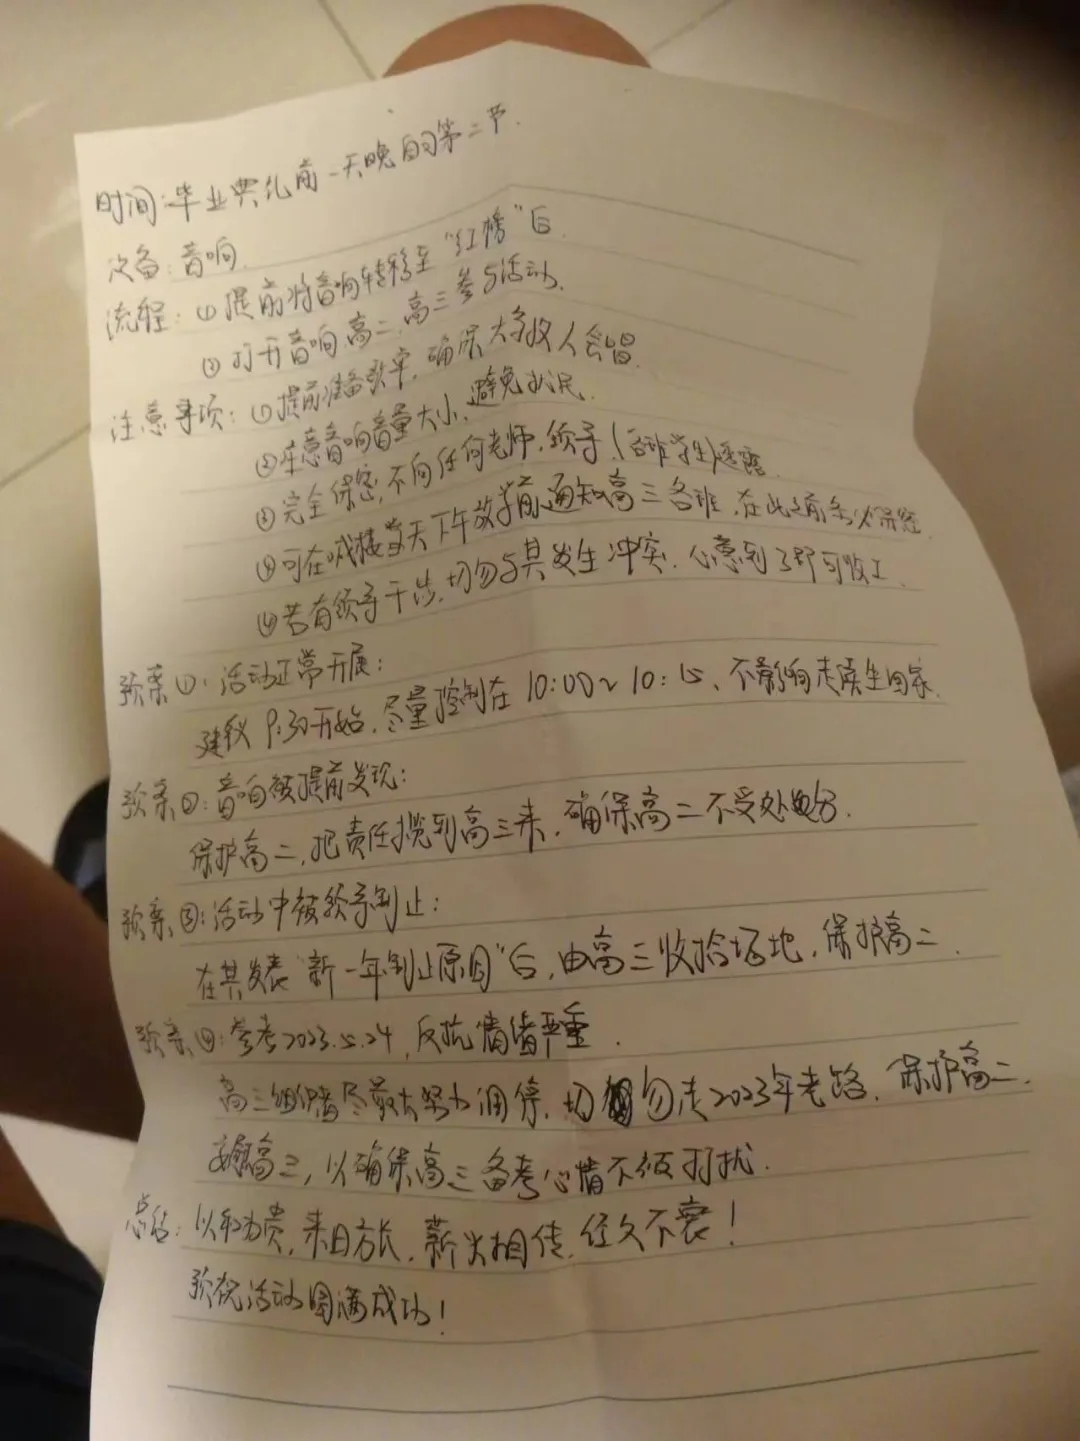 时间:毕业典礼前一天晚自习第二节.
设备:音响.
流程:①提前将音响转移至"红榜"后.
②打开音响高二、高三参与活动.
注意事项:①提前准备歌单,确保大多数人会唱.
②注意音响音量大小,避免扰民.
③完全保密,不向任何老师,领导(各班学生)透露
④可在喊楼当天下午放学前通知高三各班,在此之前务必保密
④若有领导干涉,切勿与其发生冲突,心意到了即可收工.
预案①:活动正常开展:
建议9:30开始,尽量控制在10:00~10:15、不影响走读生回家.
预案②:音响被提前发现:
保护高二,把责任揽到高三来,确保高二不受处分.
预案③:活动中被领导制止:
在其发表"新一年制止原因"后,由高三收拾场地,保护高二.
预案④:参考2023.5.24,反抗情绪严重.
高三组织者尽最大努力调停,切勿走2023年老路,保护高二
安顿高三,以确保高三备考心情不被打扰.
总结:以和为贵,来日方长,薪火相传,经久不衰!
预祝活动圆满成功!